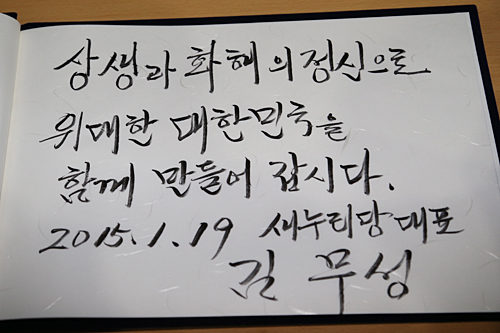 상생과 화해의 정신으로
위대한 대한민국을
함께 만들어 갑시다.
2015.1.19 새누리당대표
김무성